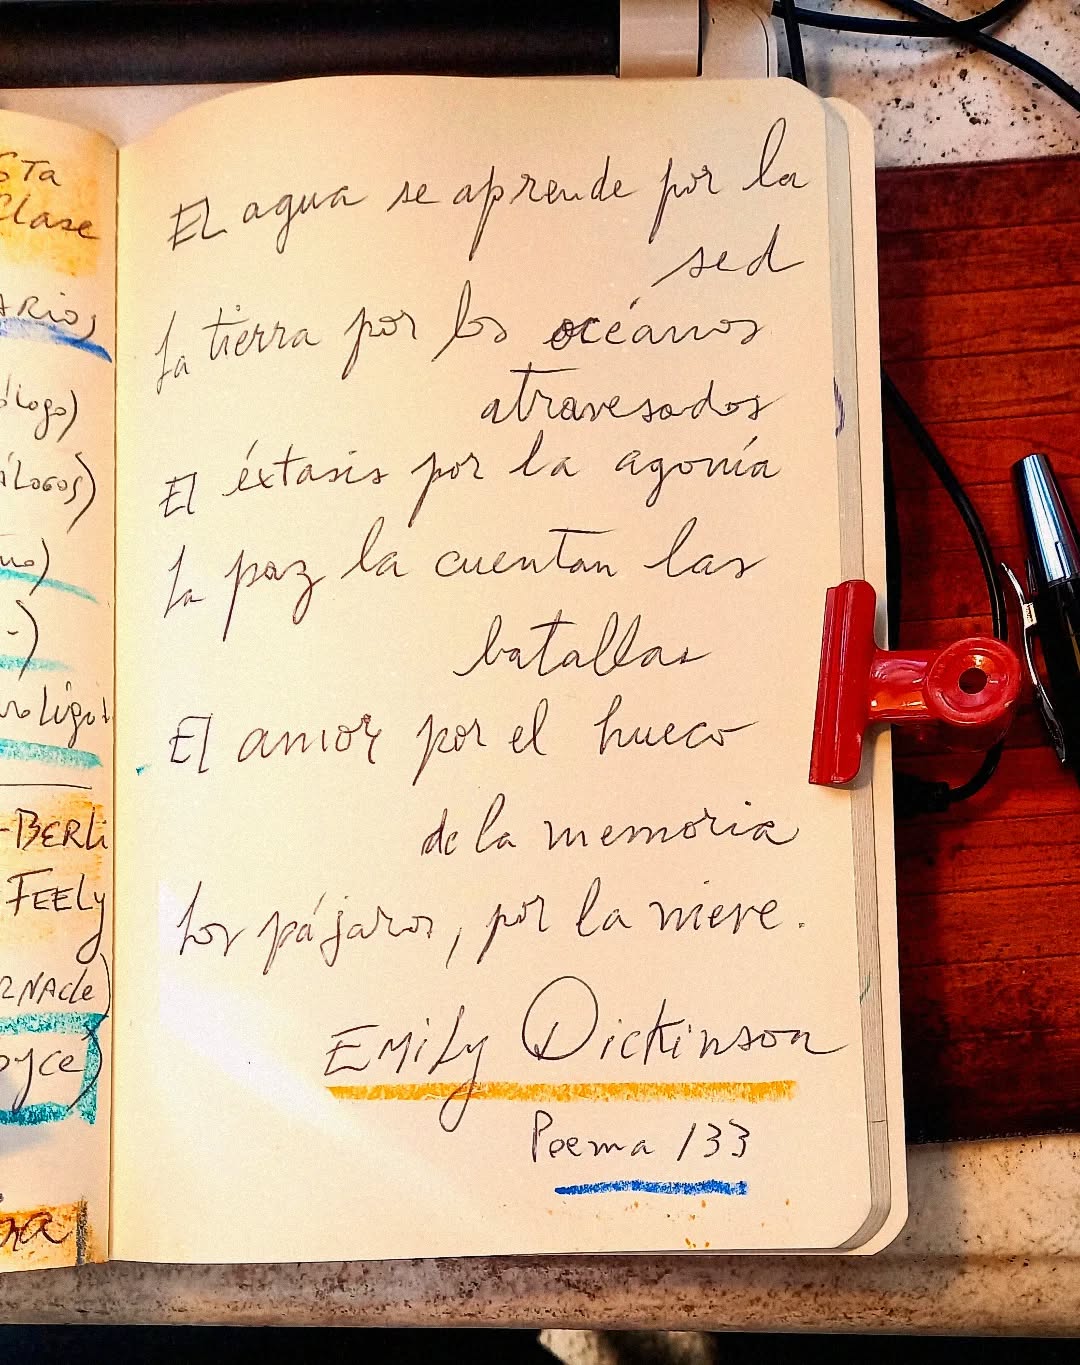 STa
Clase
ARios
ólogo)
íLogos)
-)
-BERLi
FEELY
RNAcle
oyce)
El agua se aprende por la
sed
La tierra por los océanos
atravesados
El éxtasis por la agonía
La paz la cuentan las
batallas
El amor por el hueco
de la memoria
Los pájaros, por la nieve.
Emily Dickinson
Poema 133